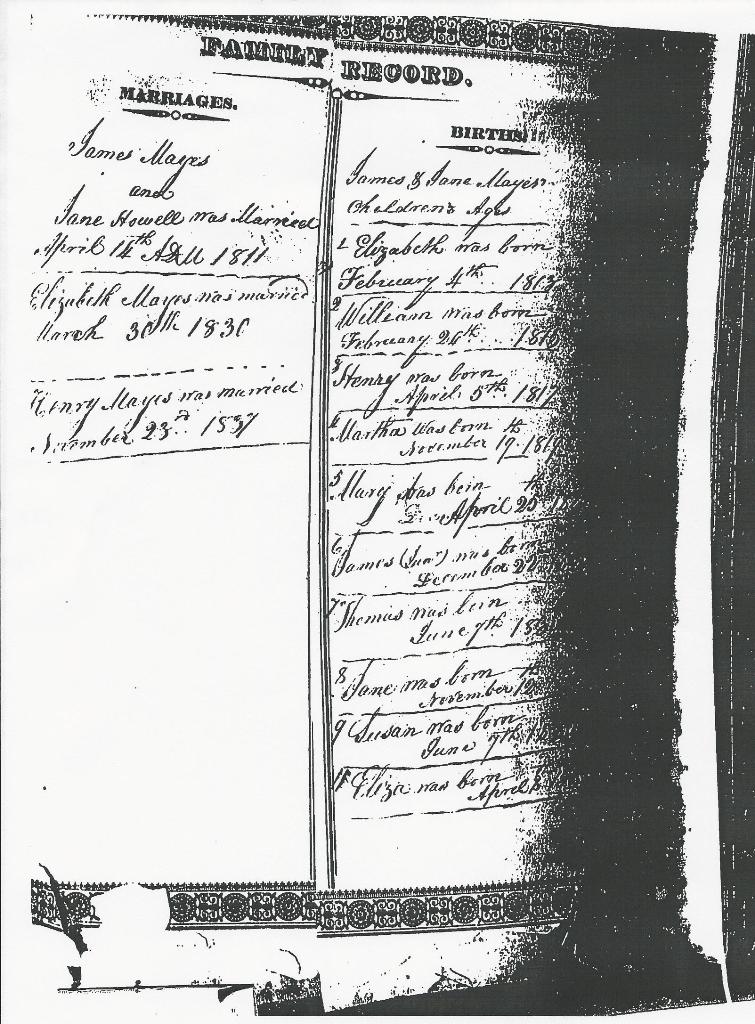 FAMILY RECORD.
MARRIAGES.
James Mayes
and
Jane Howell was Married
April 14th 1811
Elizabeth Mayes was married
March 30th 1830
Henry Mayes was married
November 23rd 1837
BIRTHS
James & Jane Mayes
Childrens Ages
1 Elizabeth was born
February 4th 1813
2 William was born
February 24th
3 Henry was born
April 5th 1817
4 Martha was born
November 19th 1819
5 Mary was born
April 25th
6 James (Junr) was born
December 22
7 Thomas was born
June 7th
8 Jane was born
November
9 Susan was born
June 7th
Eliza was born
April